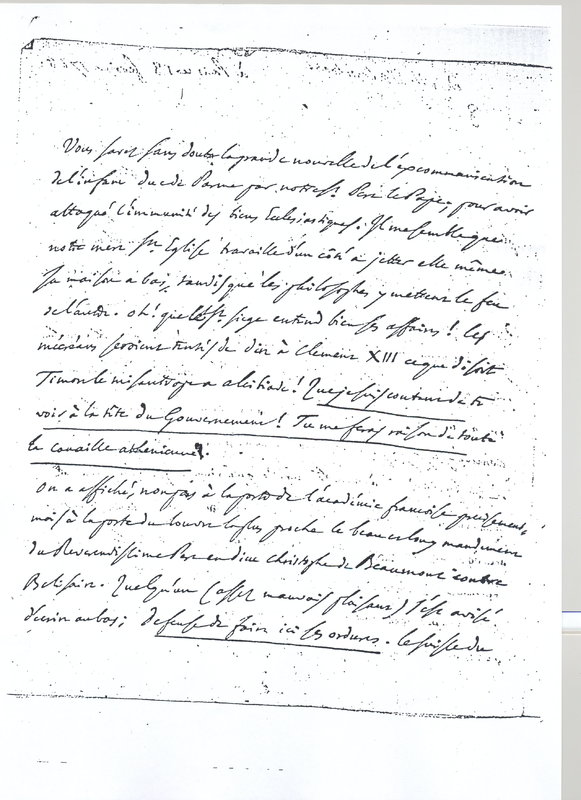 à Paris ce 18 fevrier 1768
Vous savez sans doute la grande nouvelle de l'excommunication
de l'infant duc de Parme par notre St. Pere le Pape, pour avoir
attaqué l'immunité des biens Ecclesiastiques. Il me semble que
notre mere Ste Eglise travaille d'un côté à jetter elle même
sa maison a bas, tandis que les philosophes y mettent le feu
de l'autre. oh! que le St. siege entend bien ses affaires! les
mécréans seroient tentés de dire à Clement XIII ce que disoit
Timon le misantrope a alcibiade! Que je suis content de te
voir à la tête du Gouvernement! Tu me feras raison de toute
la canaille athenienne.
on a affiché, non pas à la porte de l'académie françoise precisement,
mais à la porte du louvre la plus proche le beau et long mandement
du Reverendissime Pere en dieu christophe de Beaumont contre
Belisaire. Quelqu'un (assez mauvais plaisant) s'est avisé
d'ecrire au bas; defense de faire ici ses ordures. le suisse du